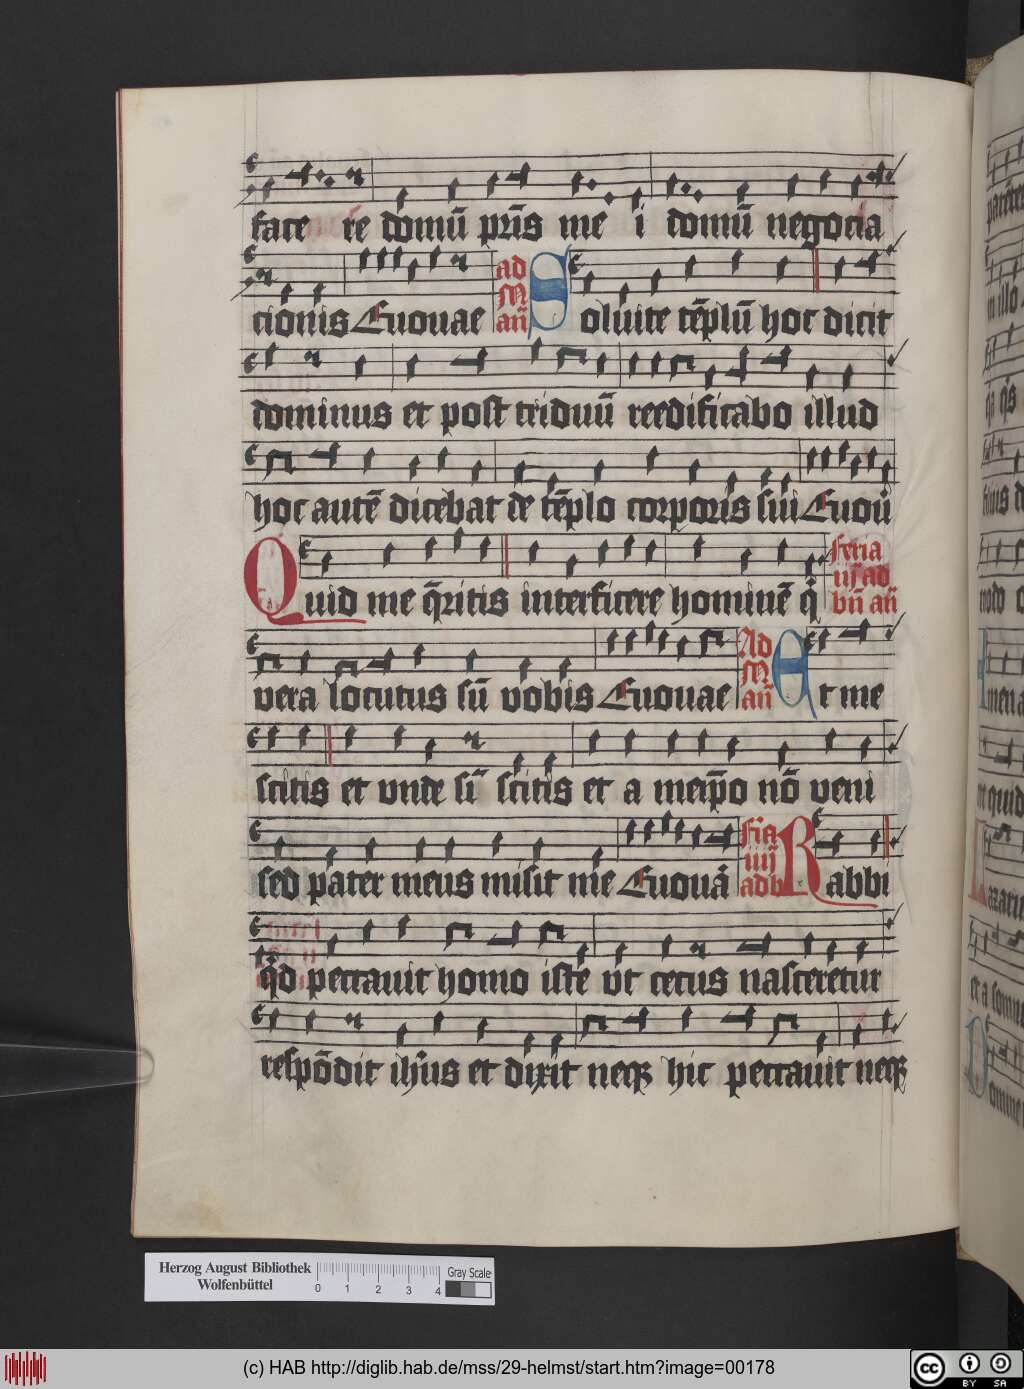 facere domū pr̄is mei domū negocia
cionis Euouae ad M an̄ Soluite tēplū hoc dicit
dominus et post triduū reedificabo illud
hoc autē dicebat de tēplo corporis sui Euoua
Quid me q̄ritis interficere hominē q feria iij ad bn̄ an̄
vera locutus sū vobis Euouae Ad M an̄ Et me
scitis et vnde sī scitis et a meip̄o nō veni
sed pater meus misit me Euoua fia iiij ad b Rabbi
qd peccauit homo iste vt cecus nasceretur
respōdit ihūs et dixit neqꝫ hic peccauit neqꝫ
Herzog August Bibliothek
Wolfenbüttel
0 1 2 3 4
Gray Scale
(c) HAB http://diglib.hab.de/mss/29-helmst/start.htm?image=00178
cc BY SA